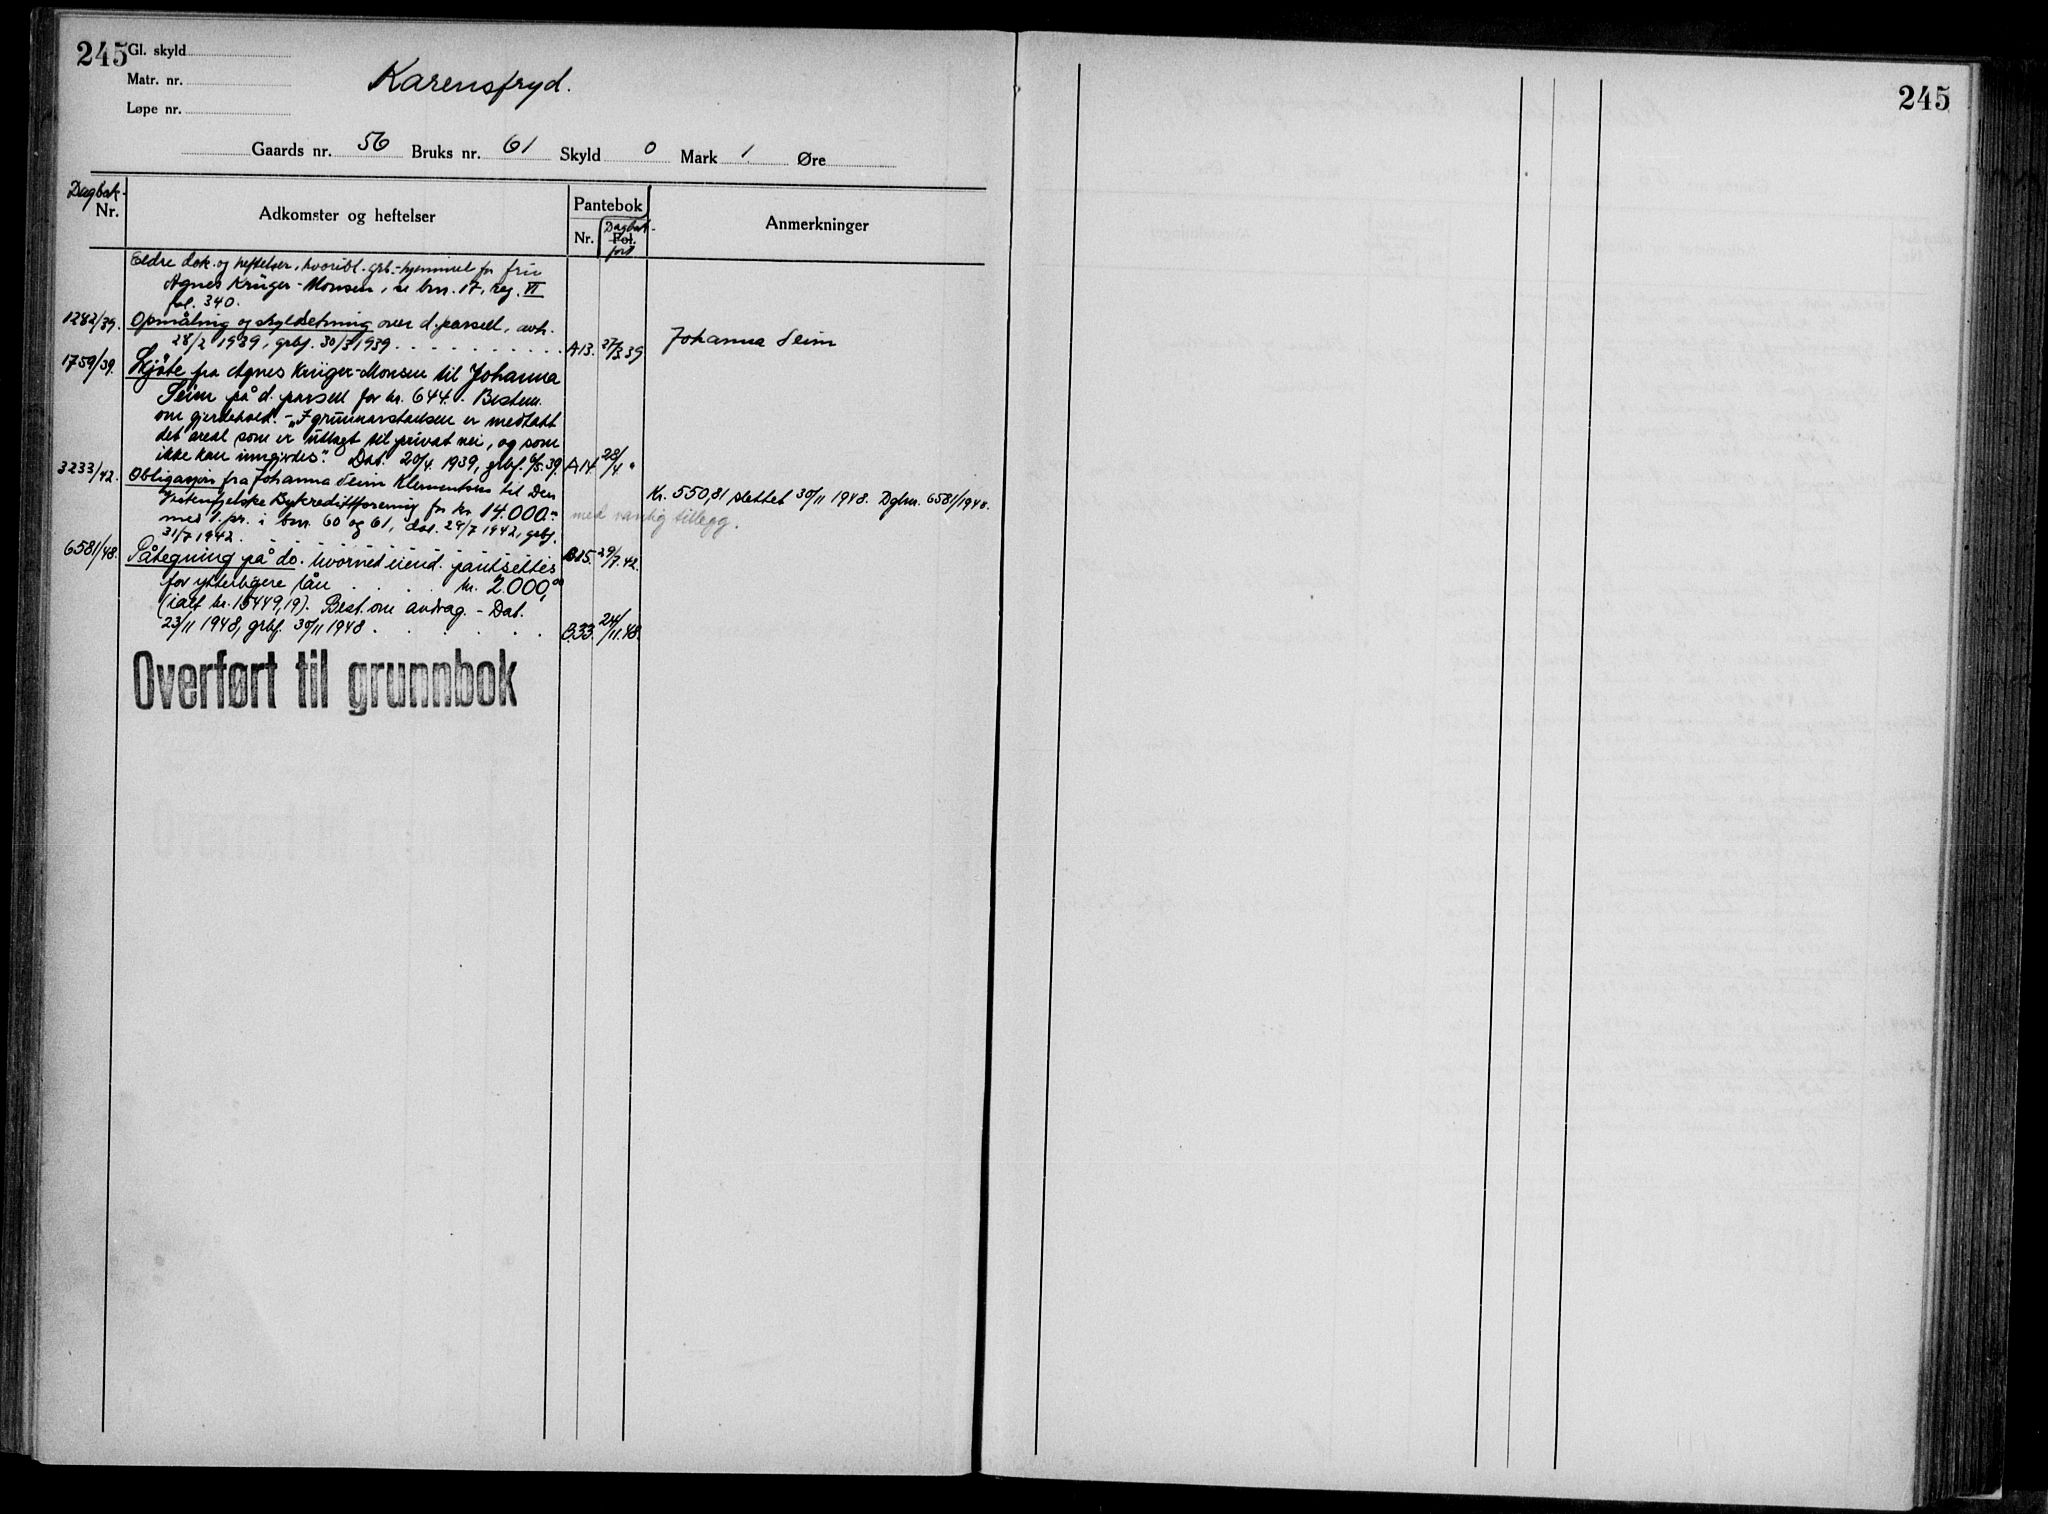 245 Gl. skyld
Matr. nr.
Løpe nr.
Karensfryd.
Gaards nr. 56 Bruks nr. 61 Skyld 0 Mark 1 Øre
Dagbok-
Nr.
Adkomster og heftelser
Pantebok
Nr.
Dagbok-
Fol.
ført
Anmerkninger
Eldre dok. og heftelser, hvoribl. grb.-hjemmel for fru
Agnes Krüger-Monsen, se bnr. 17, reg. VI
fol. 340.
1282/39. Opmåling og skyldsetning over d. parsell, avh.
28/2 1939, grbf. 30/3 1939. A13. 27/3 39 Johanna Seim
1759/39. Skjøte fra Agnes Krüger-Monsen til Johanna
Seim på d. parsell for kr. 644.- Bestem.
om gjerdehold. - "I grunnarstadsen er medtatt
det areal som er uttaget til privat vei, og som
ikke kan inngjerdes". Dat. 20/4. 1939, grbf. 6/5. 39. A14. 28/4 "
3233/42. Obligasjon fra Johanna Seim Klementsen til Den
Vestenfjelske Bykredittforening for kr. 14.000.-
med 1. pr. i bnr. 60 og 61, dat. 24/7 1942, grbf.
31/7 1942. B15. 29/7. 42.
Kr. 550,81 slettet 30/11 1948. Dgbnr. 6581/1948.
med vanlig tillegg.
6581/48. Påtegning på do. hvorved eiend. pantsettes
for ytterligere lån kr. 2.000,00
(ialt kr. 15449,19). Best. om avdrag. - Dat.
23/11 1948, grbf. 30/11 1948. B.33. 24/11. 48.
Overført til grunnbok
245